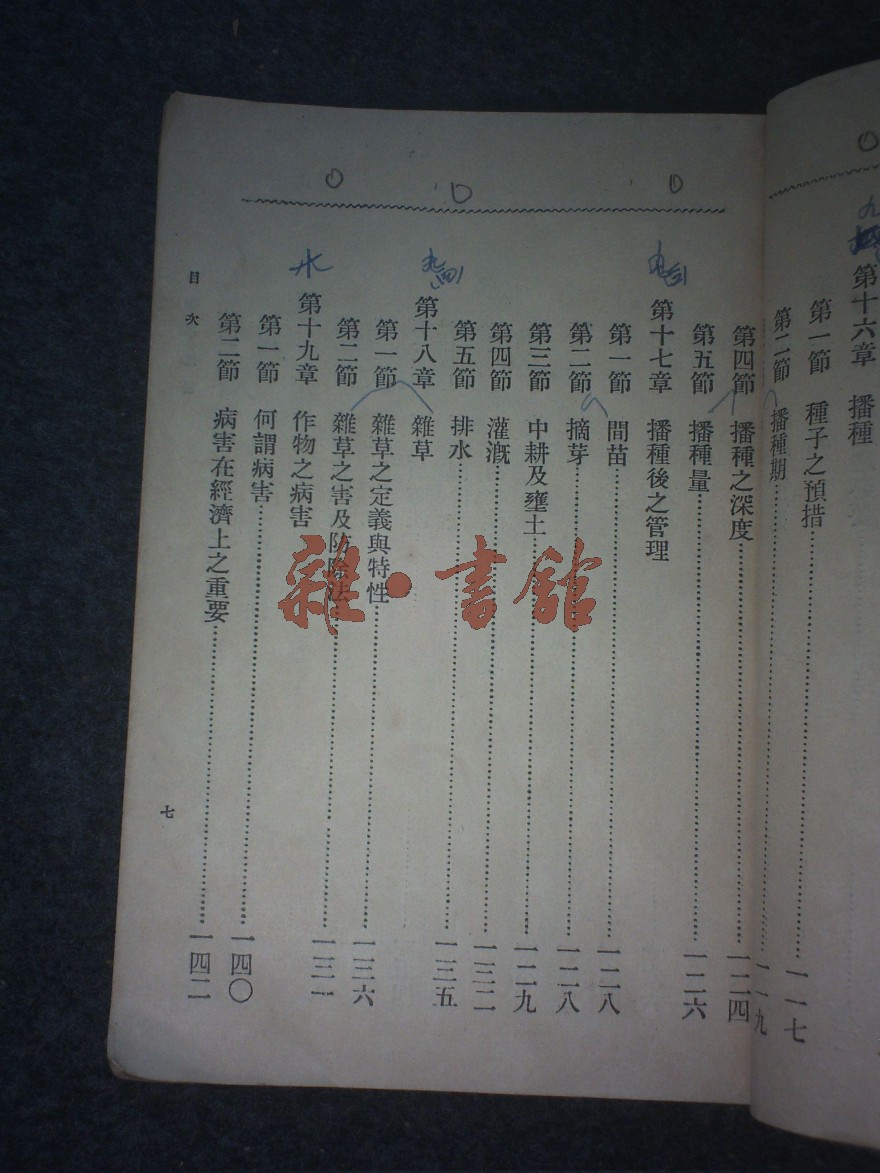 第十六章　播種
第一節　種子之預措……一一七
第二節　播種期……一一九
第四節　播種之深度……一二四
第五節　播種量……一二六
第十七章　播種後之管理
第一節　間苗……一二八
第二節　摘芽……一二八
第三節　中耕及壅土……一二九
第四節　灌漑……一三二
第五節　排水……一三五
第十八章　雜草
第一節　雜草之定義與特性……一三六
第二節　雜草之害及防除法……一三一
第十九章　作物之病害
第一節　何謂病害……一四〇
第二節　病害在經濟上之重要……一四二
目次
七
雜·書館